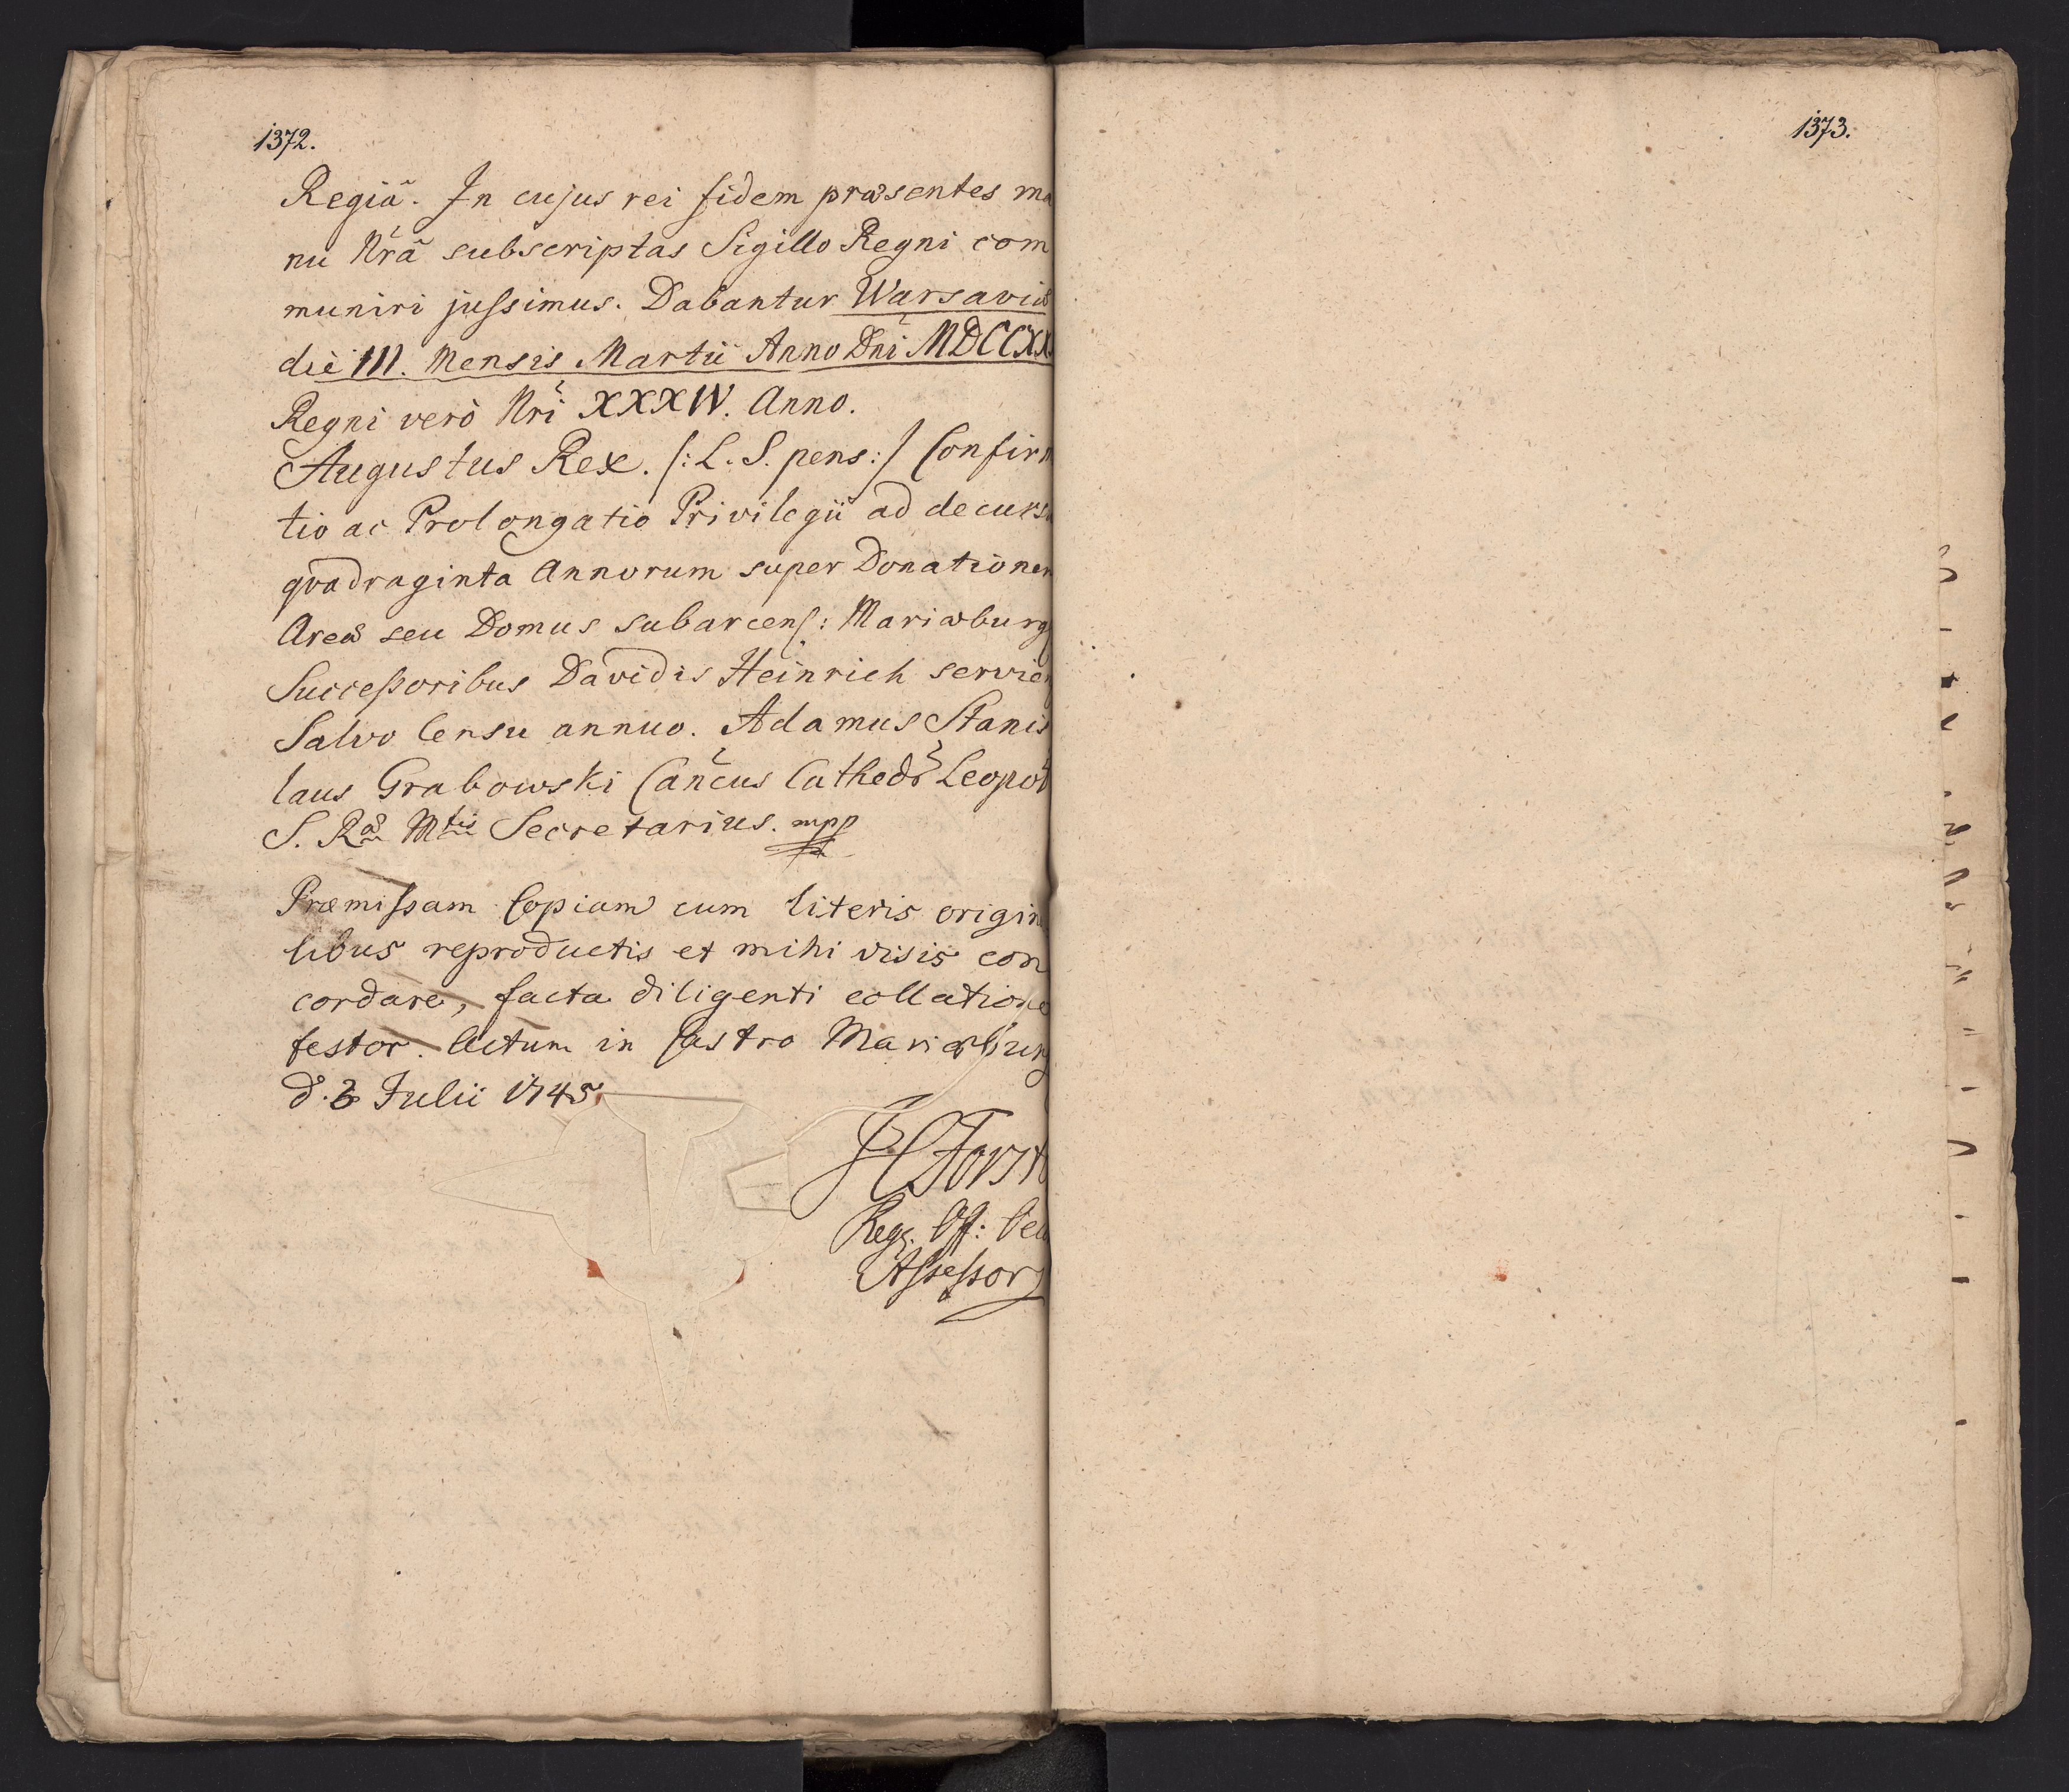 1372.
Regiâ. In cujus rei fidem præsentes ma
nu Nrâ subscriptas Sigillo Regni com
muniri jussimus. Dabantur Warsaviæ
die III. Mensis Martii Anno Dni MDCCXX
Regni verò Nri XXXIV. Anno.
Augustus Rex. /: L. S. pens :/ Confirm
tio ac Prolongatio Privilegii ad decurs
qvadraginta Annorum super Donationem
Areæ seu Domus subarcens: Mariæburg
Successoribus Davidis Heinrich servien
Salvo Censu annuo. Adamus Stanis
laus Grabowski Cancus Cathedr Leopol
S. Ræ Mtis Secretarius. mpp
Præmissam Copiam cum literis origina
libus reproductis et mihi visis con
cordare, facta diligenti collatione
testor. Actum in Castro Mariæburg
d. 3 Julii 1745.
Reg. Off: Oec
Assessor
1373.